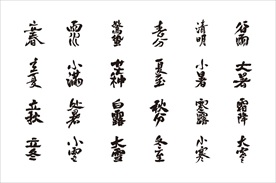 立春 雨水 驚蟄 春分 清明 谷雨
立夏 小满 芒种 夏至 小暑 大暑
立秋 处暑 白露 秋分 寒露 霜降
立冬 小雪 大雪 冬至 小寒 大寒